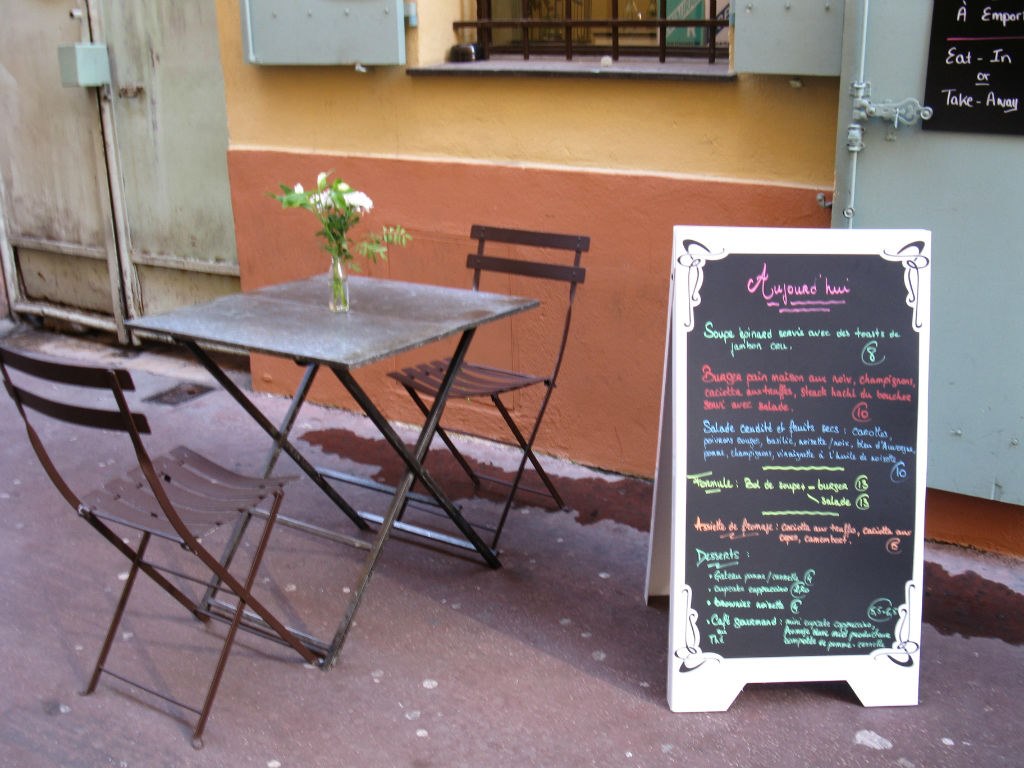 À Empor
Eat - In
or
Take - Away
Aujourd'hui
Soupe épinard servie avec des toasts de
jambon cru.
8
Burger pain maison aux noix, champignons,
caciotta aux truffes, steack haché du boucher
servi avec salade.
10
Salade crudité et fruits secs : carottes,
poivrons rouges, basilic, noisette/noix, bleu d'Auvergne,
pomme, champignons, vinaigrette à l'huile de noisette
10
Formule : Bol de soupe + burger 13
salade 13
Assiette de fromage : caciotta aux truffes, caciotta aux
cepes, camembert.
Desserts :
• Gateau pomme/cannelle 4
• cupcake cappuccino 2,50
• Brownies noisette 4
• Café gourmand : mini cupcake cappuccino,
ou fromage blanc miel producteur
Thé compotée de pomme-cannelle